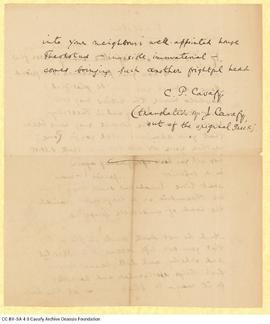 into your neighbour's well-appointed house
Theodotus — invisible, immaterial —
comes bringing such another frightful head
C. P. Cavafy.
(translated by J. Cavafy,
out of the original Greek)
CC BY-SA 4.0 Cavafy Archive Onassis Foundation